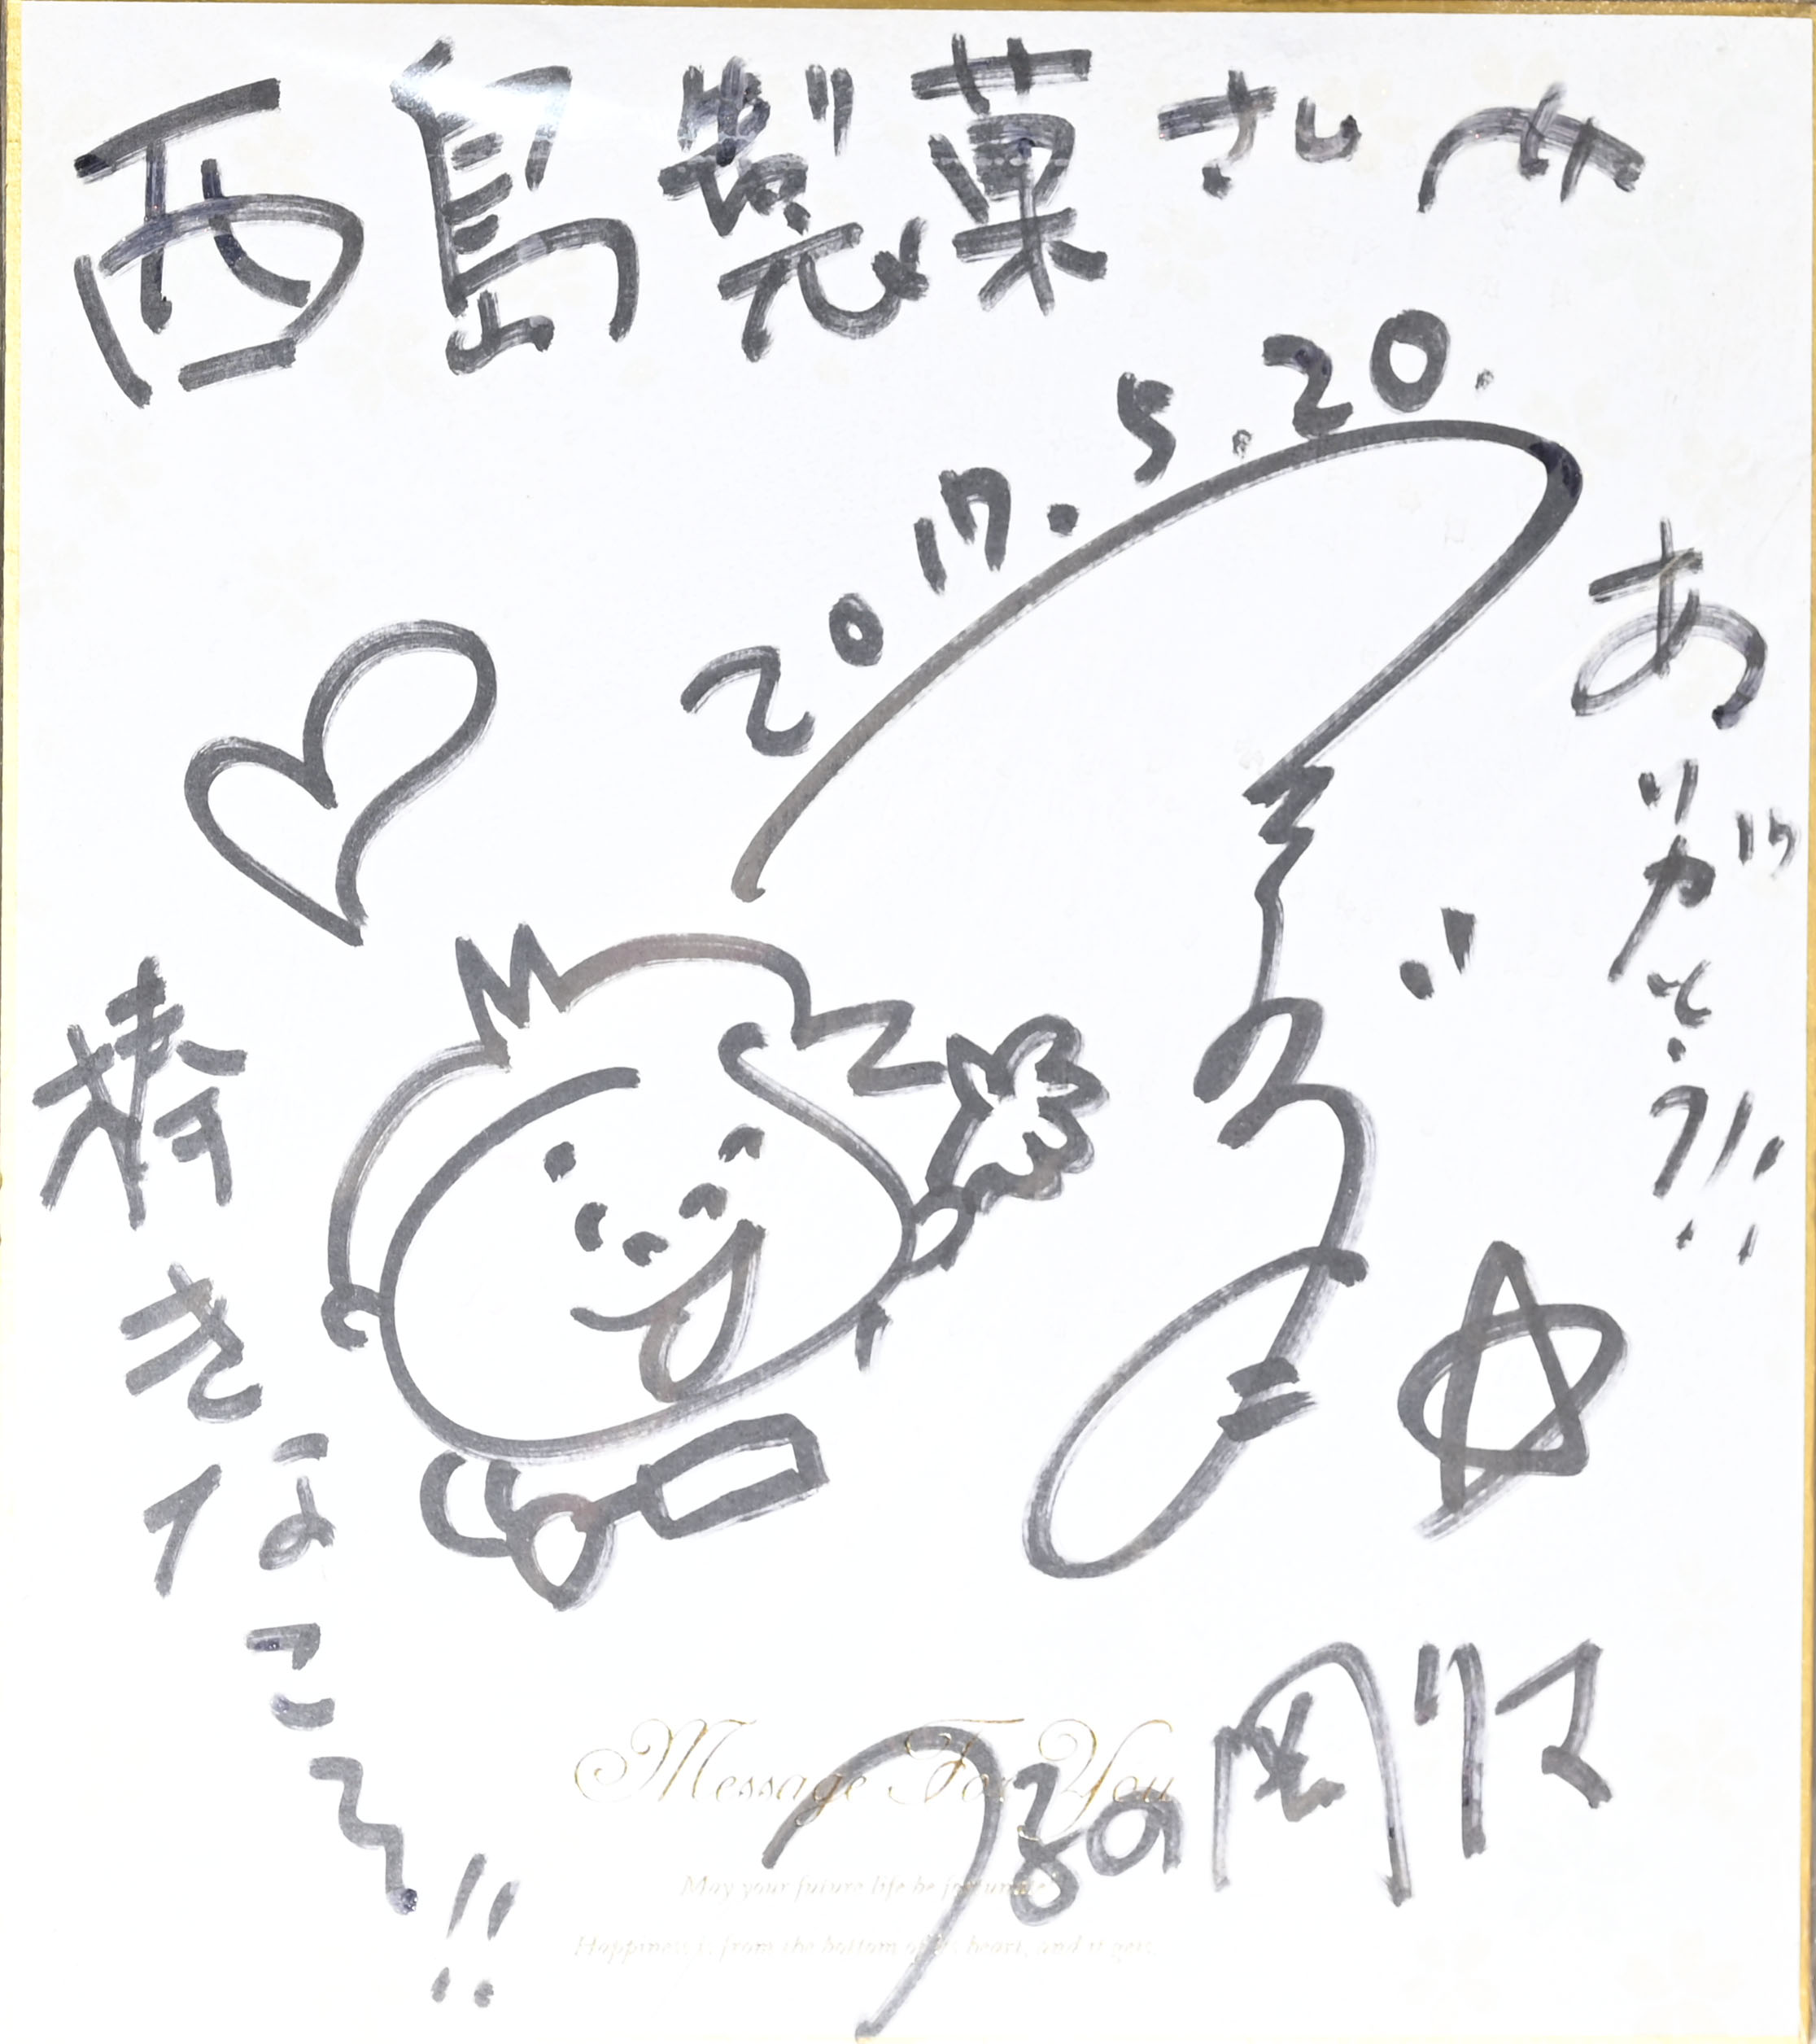 西島製菓さんへ
2017.5.20.
ありがとう!!
棒きなこ〜!!
つるの剛士
Message For You
May your future life be fortunate
Happiness is from the bottom of heart, and it gets